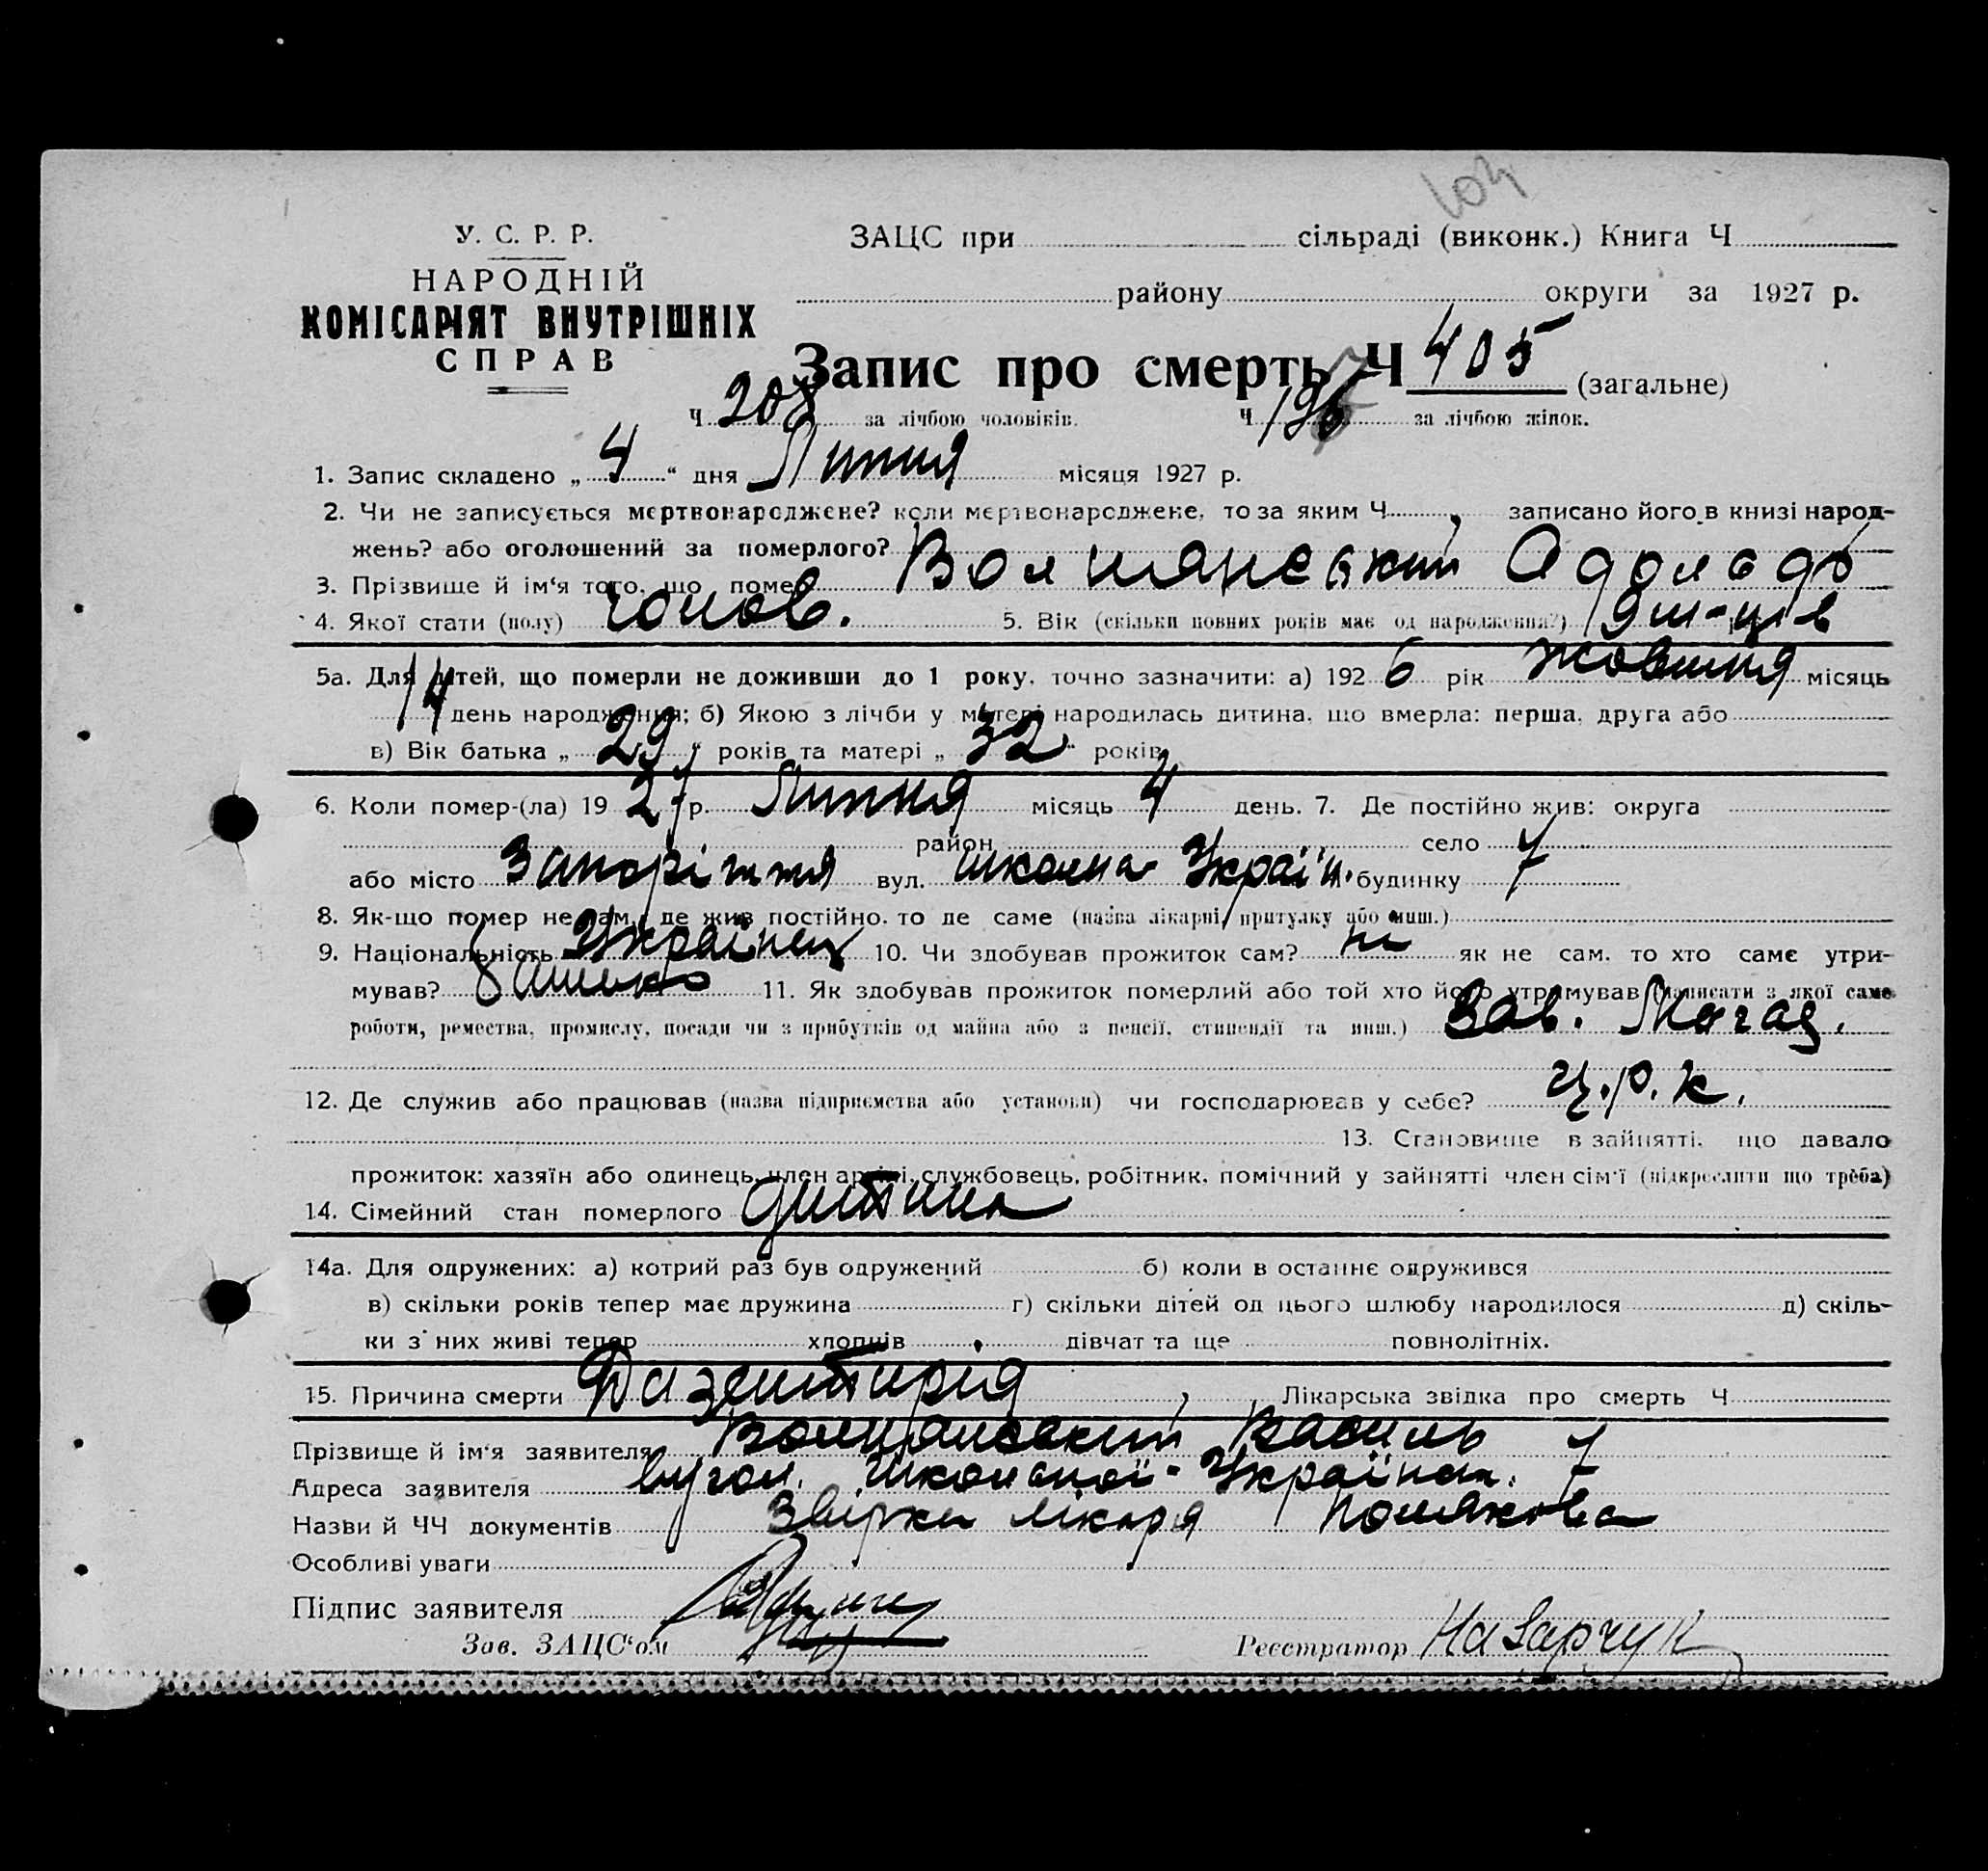 104
У. С. Р. Р.
НАРОДНІЙ
КОМІСАРІЯТ ВНУТРІШНІХ
СПРАВ
ЗАЦС при сільраді (виконк.) Книга Ч
району округи за 1927 р.
Запис про смерть Ч 405 (загальне)
Ч 208 за лічбою чоловіків. Ч 197 за лічбою жінок.
1. Запис складено „4“ дня Липня місяця 1927 р.
2. Чи не записується мертвонароджене? коли мертвонароджене, то за яким Ч , записано його в книзі народ-
жень? або оголошений за померлого?
3. Прізвище й ім'я того, що помер Волшанський Адольф
4. Якої стати (полу) чолов. 5. Вік (скільки повних років має од народження?) 9 м-ців
5а. Для дітей, що померли не доживши до 1 року, точно зазначити: а) 1926 рік жовтня місяць
14 день народження; б) Якою з лічби у матері народилась дитина, що вмерла: перша, друга або
в) Вік батька „29“ років та матері „32“ років
6. Коли помер-(ла) 1927 р. Липня місяць 4 день. 7. Де постійно жив: округа
район село
або місто Запоріжжя вул. школна Україн. будинку 7
8. Як-що помер не там, де жив постійно, то де саме (назва лікарні, притулку або инш.)
9. Національність Українец 10. Чи здобував прожиток сам? ні як не сам, то хто саме утри-
мував? батько 11. Як здобував прожиток померлий або той хто його утримував (написати з якої саме
роботи, ремества, промислу, посади чи з прибутків од майна або з пенсії, стипендії та инш.) Зав. Магаз.
12. Де служив або працював (назва підприємства або установи) чи господарював у себе? Ц.Р.К.
13. Становище в зайнятті, що давало
прожиток: хазяїн або одинець, член артілі, службовець, робітник, помічний у зайнятті член сім'ї (підкреслити що треба)
14. Сімейний стан померлого дитина
14а. Для одружених: а) котрий раз був одружений б) коли в останнє одружився
в) скільки років тепер має дружина г) скільки дітей од цього шлюбу народилося д) скіль-
ки з них живі тепер хлопців , дівчат та ще повнолітніх.
15. Причина смерти Дизентирія , Лікарська звідка про смерть Ч
Прізвище й ім'я заявителя Волшанський Василь
Адреса заявителя школної-Україн. 7
Назви й ЧЧ документів лікаря Полякова
Особливі уваги
Підпис заявителя
Зав. ЗАЦС'ом Реєстратор Назарчук